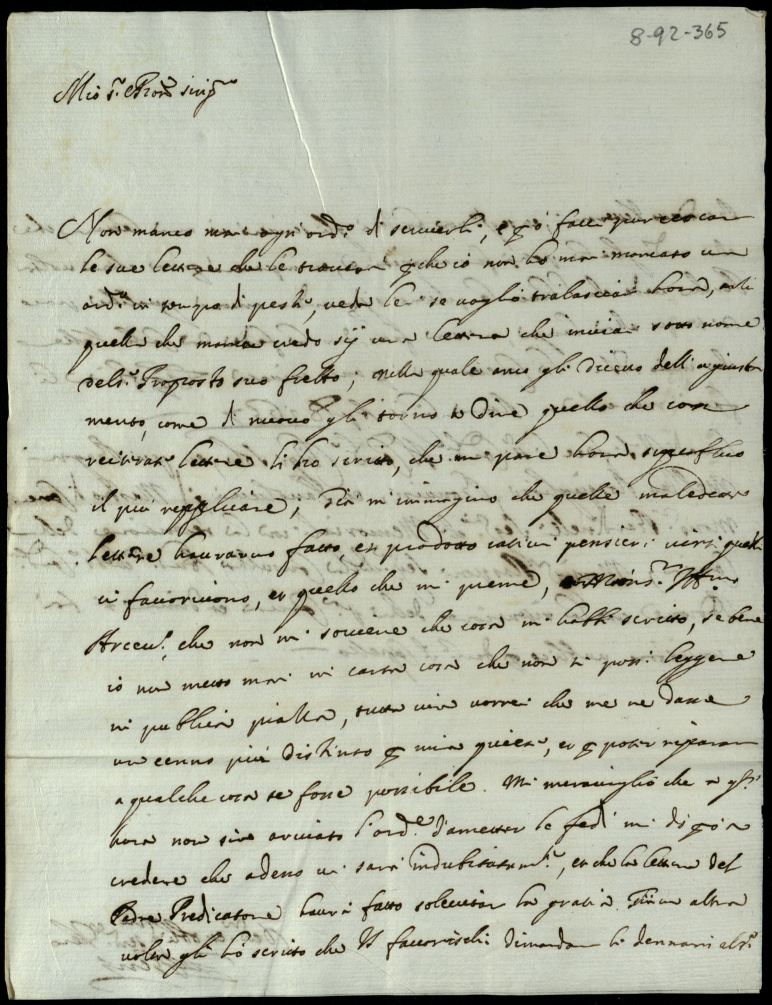 8-92-365
Mio s.r Pron sing.mo
Non manco mai ogni ord.o di servirli, e q.o facci pur cercar
le sue lettere che le trovarà che io non ho mai mancato un
ord.o in tempo di peste, veda lei se voglio tralasciar hora,
quella che manca credo sij una lettera che inviai sotto nome
del s.r Proposto suo frello; nella quale anco gli dicevo dell agiusta
mento, come di nuovo gli torno a dire quello che con
reiterate lettere li hò scritto, che mi pare hora superfluo
il più replicare, mi immagino che quelle maledette
lettere havranno fatto, et prodotto cativi pensieri verso quelli
vi favorivono, et quello che mi preme, Mons.r Ill.mo
Arceu.o, che non mi soviene che cosa mi habbi scritto, se bene
io non metto mai in carta cosa che non si possi leggere
in publica piazza, tutta via vorrei che me ne dasse
un cenno più distinto p mia quiete, et p poter riparar
a qualche cosa se fosse possibile. Mi meraviglio che a q.st
hora non sia arrivato l'ord.e d'ametter le fedi mi
credere che adesso vi sarà indubitatam.te, et che la lettera del
Padre Predicatore haurà fatto solecitar la gratia. altra
volta gli hò scritto che favorischi dimandar li dennari al s.r